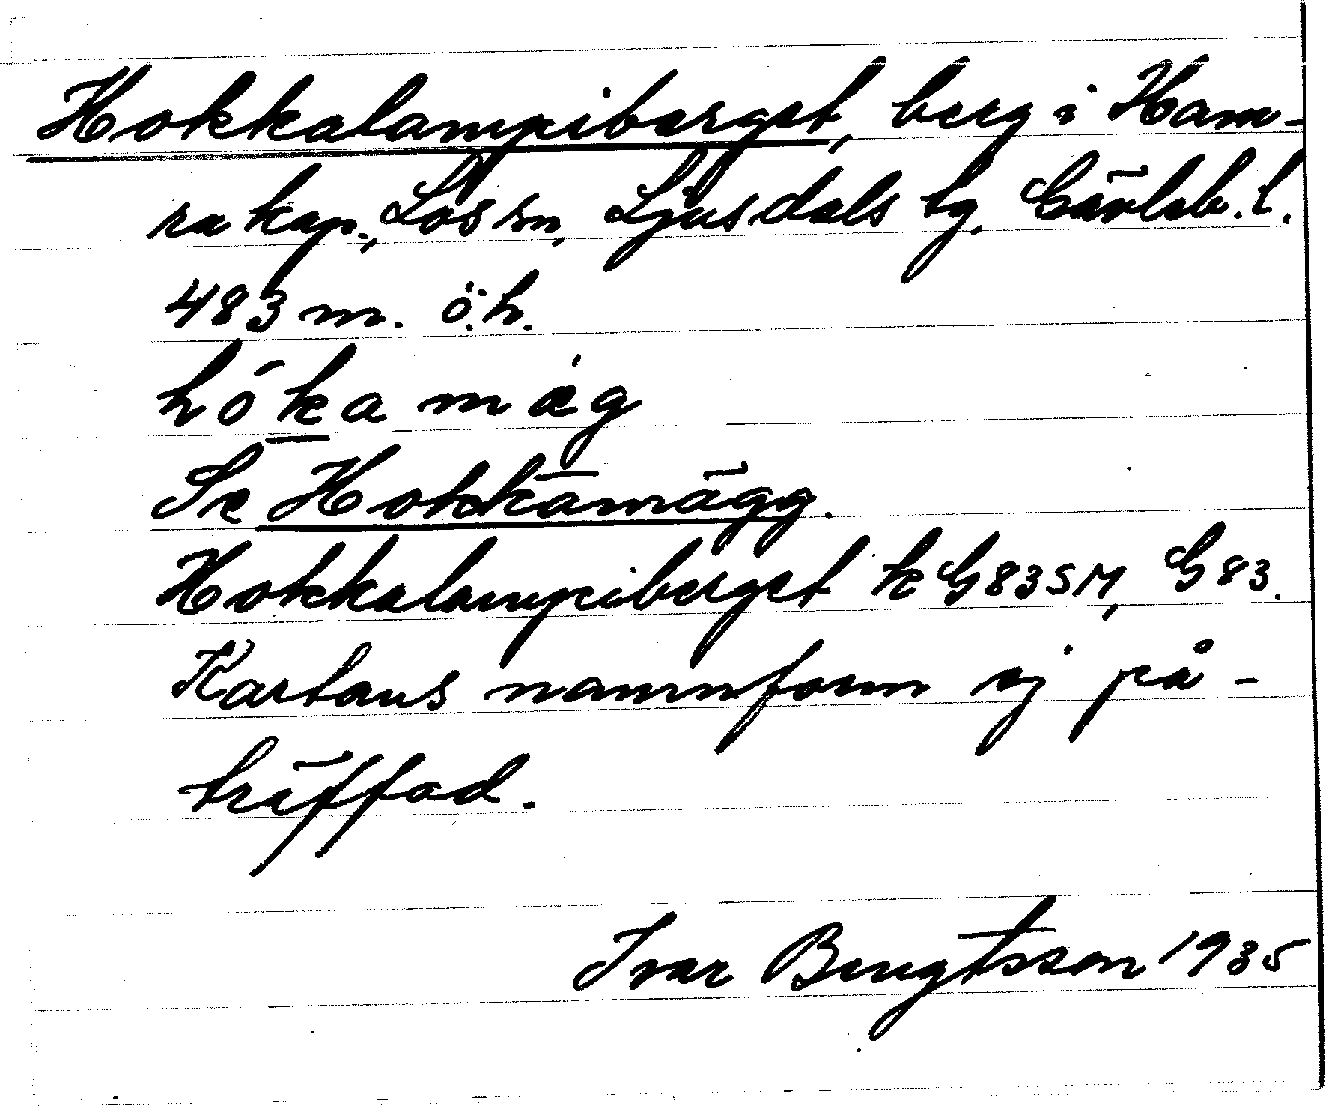 Hokkalampiberget, berg i Ham-
ra kap., Los sn, Ljusdals tg, Gävleb. l.
483 m. ö.h.
hókamäg
Se Hokkamägg.
Hokkalampiberget k G83SM, G83.
Kartans namnform ej på-
träffad.
Ivar Bengtsson 1935